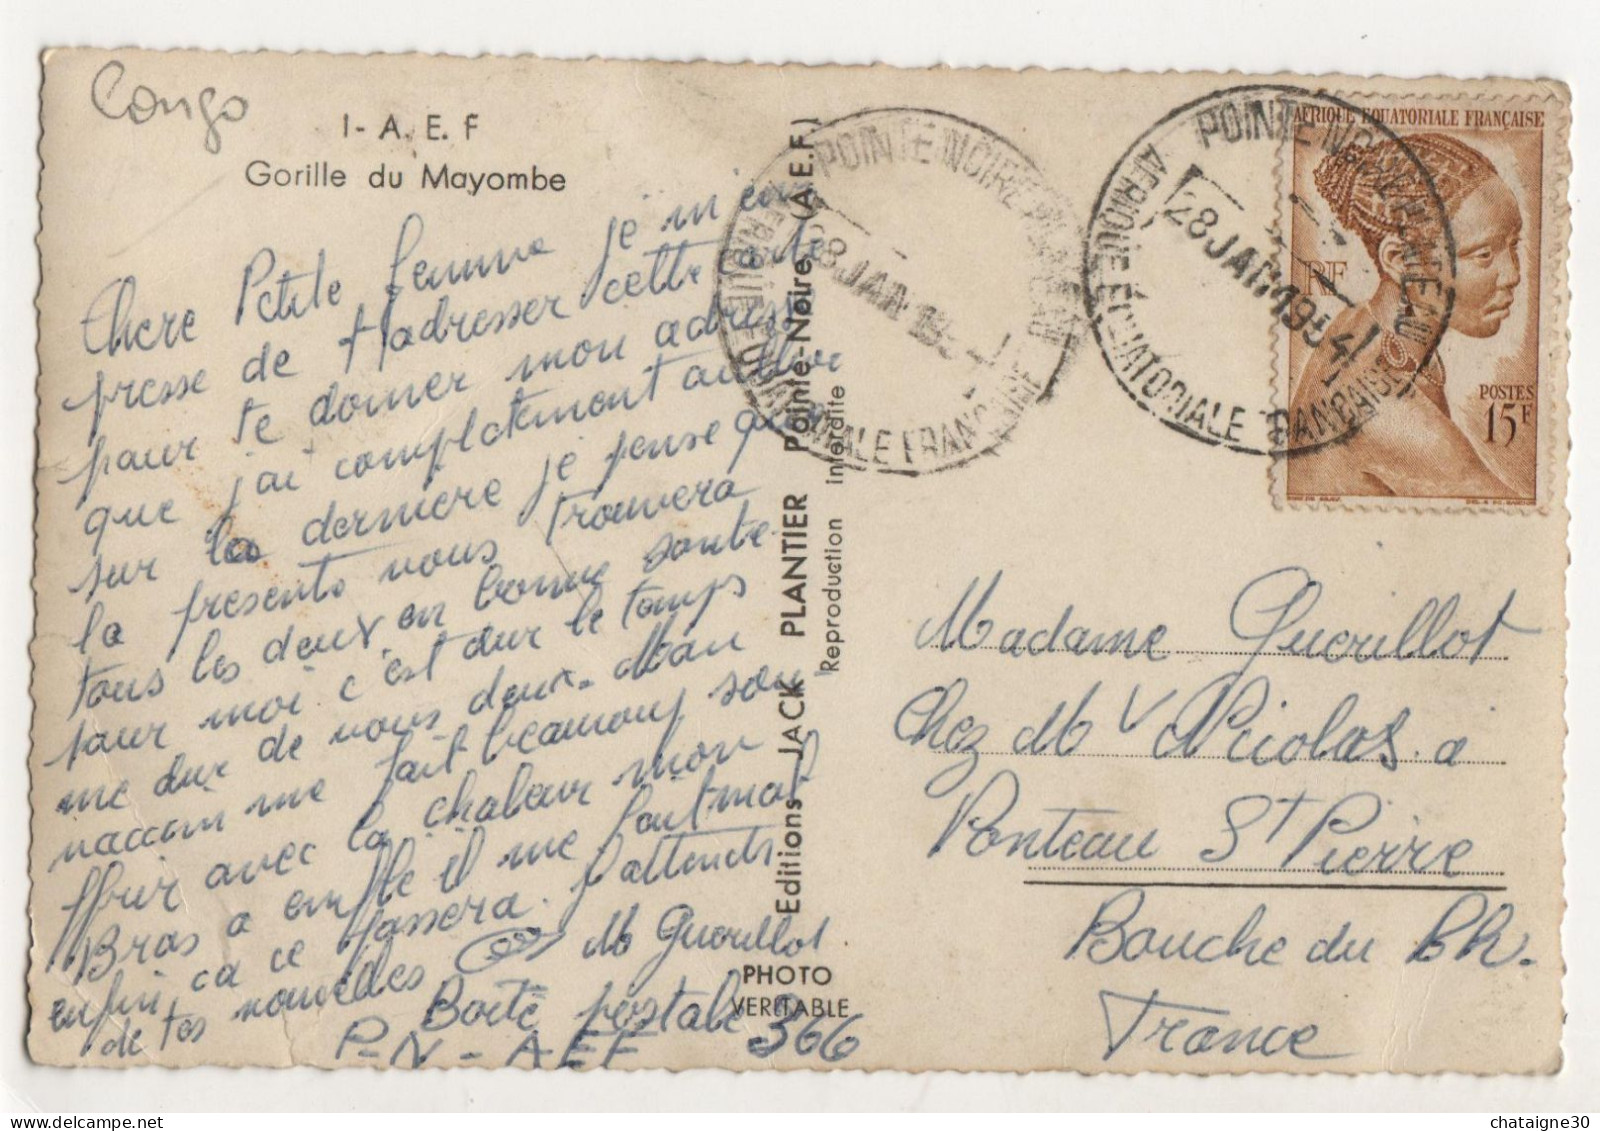 Congo
I - A. E. F
Gorille du Mayombe
Chere Petite femme je m'em
presse de t'adresser cette carte
pour te donner mon adresse
que j'ai completement oublier
sur la derniere je pense que
la presente vous trouvera
tous les deux en bonne sante.
pour moi c'est dur le temps
me dur de vous deux. Mon
vaccin me fait beaucoup sou
ffrir avec la chaleur mon
Bras a enfle il me fait mal
enfin ca ce passera. J'attends
de tes nouvelles M Guerillot
Boite postale 366
P-N - A E F
Editions JACK PLANTIER Pointe-Noire, (A.E.F.)
Reproduction interdite
PHOTO
VERITABLE
POINTE NOIRE PLATEAU
28 JAN 195
AFRIQUE EQUATORIALE FRANÇAISE
POINTE NOIRE PLATEAU
28 JAN 1954
AFRIQUE EQUATORIALE FRANÇAISE
AFRIQUE EQUATORIALE FRANÇAISE
RF
POSTES
15F
Madame Guerillot
Chez Mr Nicolas. a
Ponteau St Pierre
Bouche du Rh.
France
chataigne30